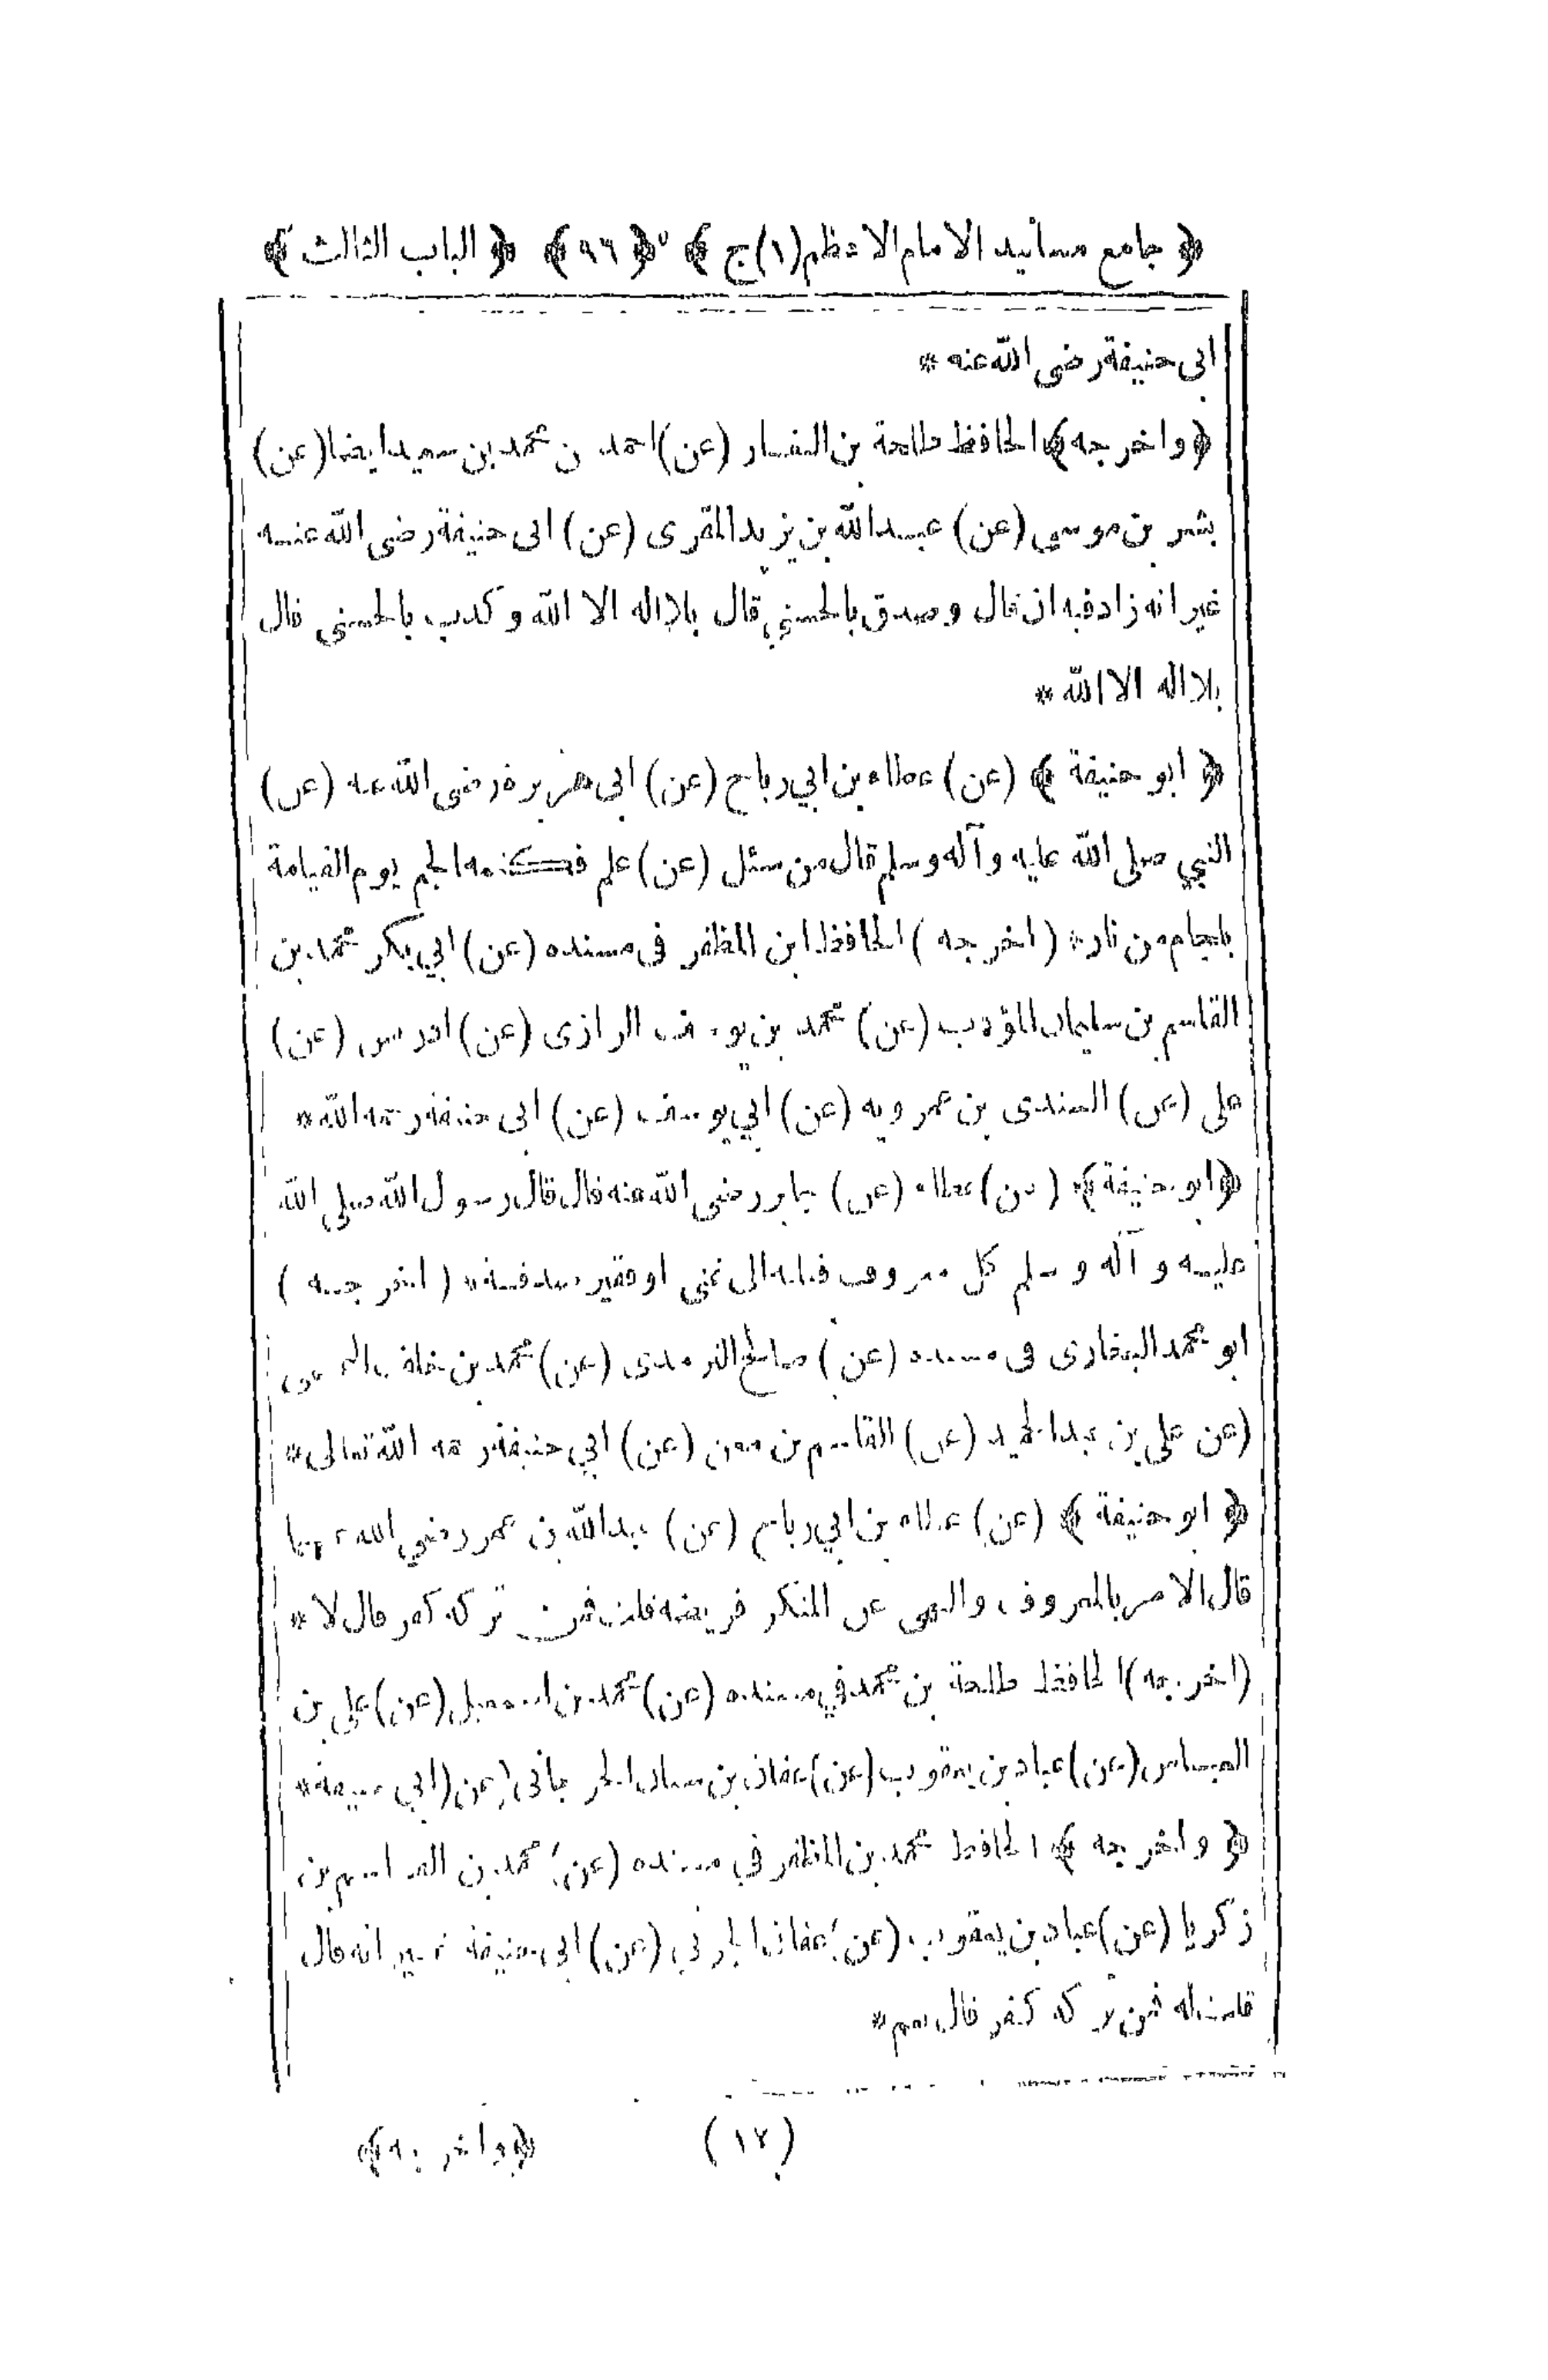 ﴿ جامع مسانيد الامام الاعظم(١)ج ﴾ ﴿ ٩٦ ﴾ ﴿ الباب الثالث ﴾
ابى حنيفة رضى الله عنه *
﴿ واخرجه ﴾ الحافظ طلحة بن (عن) احمد بن محمد بن سعيد ايضا (عن)
بشر بن موسى (عن) عبد الله بن يزيد المقرى (عن) ابى حنيفة رضى الله عنه
غير انه زاد فيه ان قال وصدق بالحسنى قال بلا اله الا الله وكذب بالحسنى قال
بلا اله الا الله *
﴿ ابو حنيفة ﴾ (عن) عطاء بن ابي رباح (عن) ابى هريرة رضى الله عنه (عن)
النبي صلى الله عليه وآله وسلم قال من سئل (عن) علم فكتمه الجم يوم القيامة
بلجام من نار * (اخرجه) الحافظ ابن المظفر فى مسنده (عن) ابي بكر محمد بن
القاسم بن سليمان المؤدب (عن) محمد بن يوسف الرازى (عن) ادريس (عن)
على (عن) السندى بن عمرويه (عن) ابي يوسف (عن) ابى حنيفة رحمه الله *
﴿ ابو حنيفة ﴾ (عن) عطاء (عن) جابر رضى الله عنه قال قال رسول الله صلى الله
عليه وآله وسلم كل معروف فعلته الى غنى او فقير صدقة * (اخرجه)
ابو محمد البخارى فى مسنده (عن) صالح الترمذى (عن) محمد بن خلف
(عن على بن عبد الحميد (عن) القاسم بن معن (عن) ابي حنيفة رحمه الله تعالى *
﴿ ابو حنيفة ﴾ (عن) عطاء بن ابي رباح (عن) عبد الله بن عمر رضي الله عنهما
قال الامر بالمعروف والنهى عن المنكر فريضة قلت فمن تركه كفر قال لا *
(اخرجه) الحافظ طلحة بن محمد في مسنده (عن) محمد بن اسمعيل (عن) على بن
العباس (عن) عباد بن يعقوب (عن) عفان بن سنان الجرجانى (عن) ابي حنيفة *
﴿ واخرجه ﴾ الحافظ محمد بن المظفر في مسنده (عن) محمد بن القاسم بن
زكريا (عن) عباد بن يعقوب (عن) عفان (عن) ابى حنيفة غير انه قال
قلت له فمن تركه كفر قال نعم *
(١٢) ﴿ واخرجه ﴾